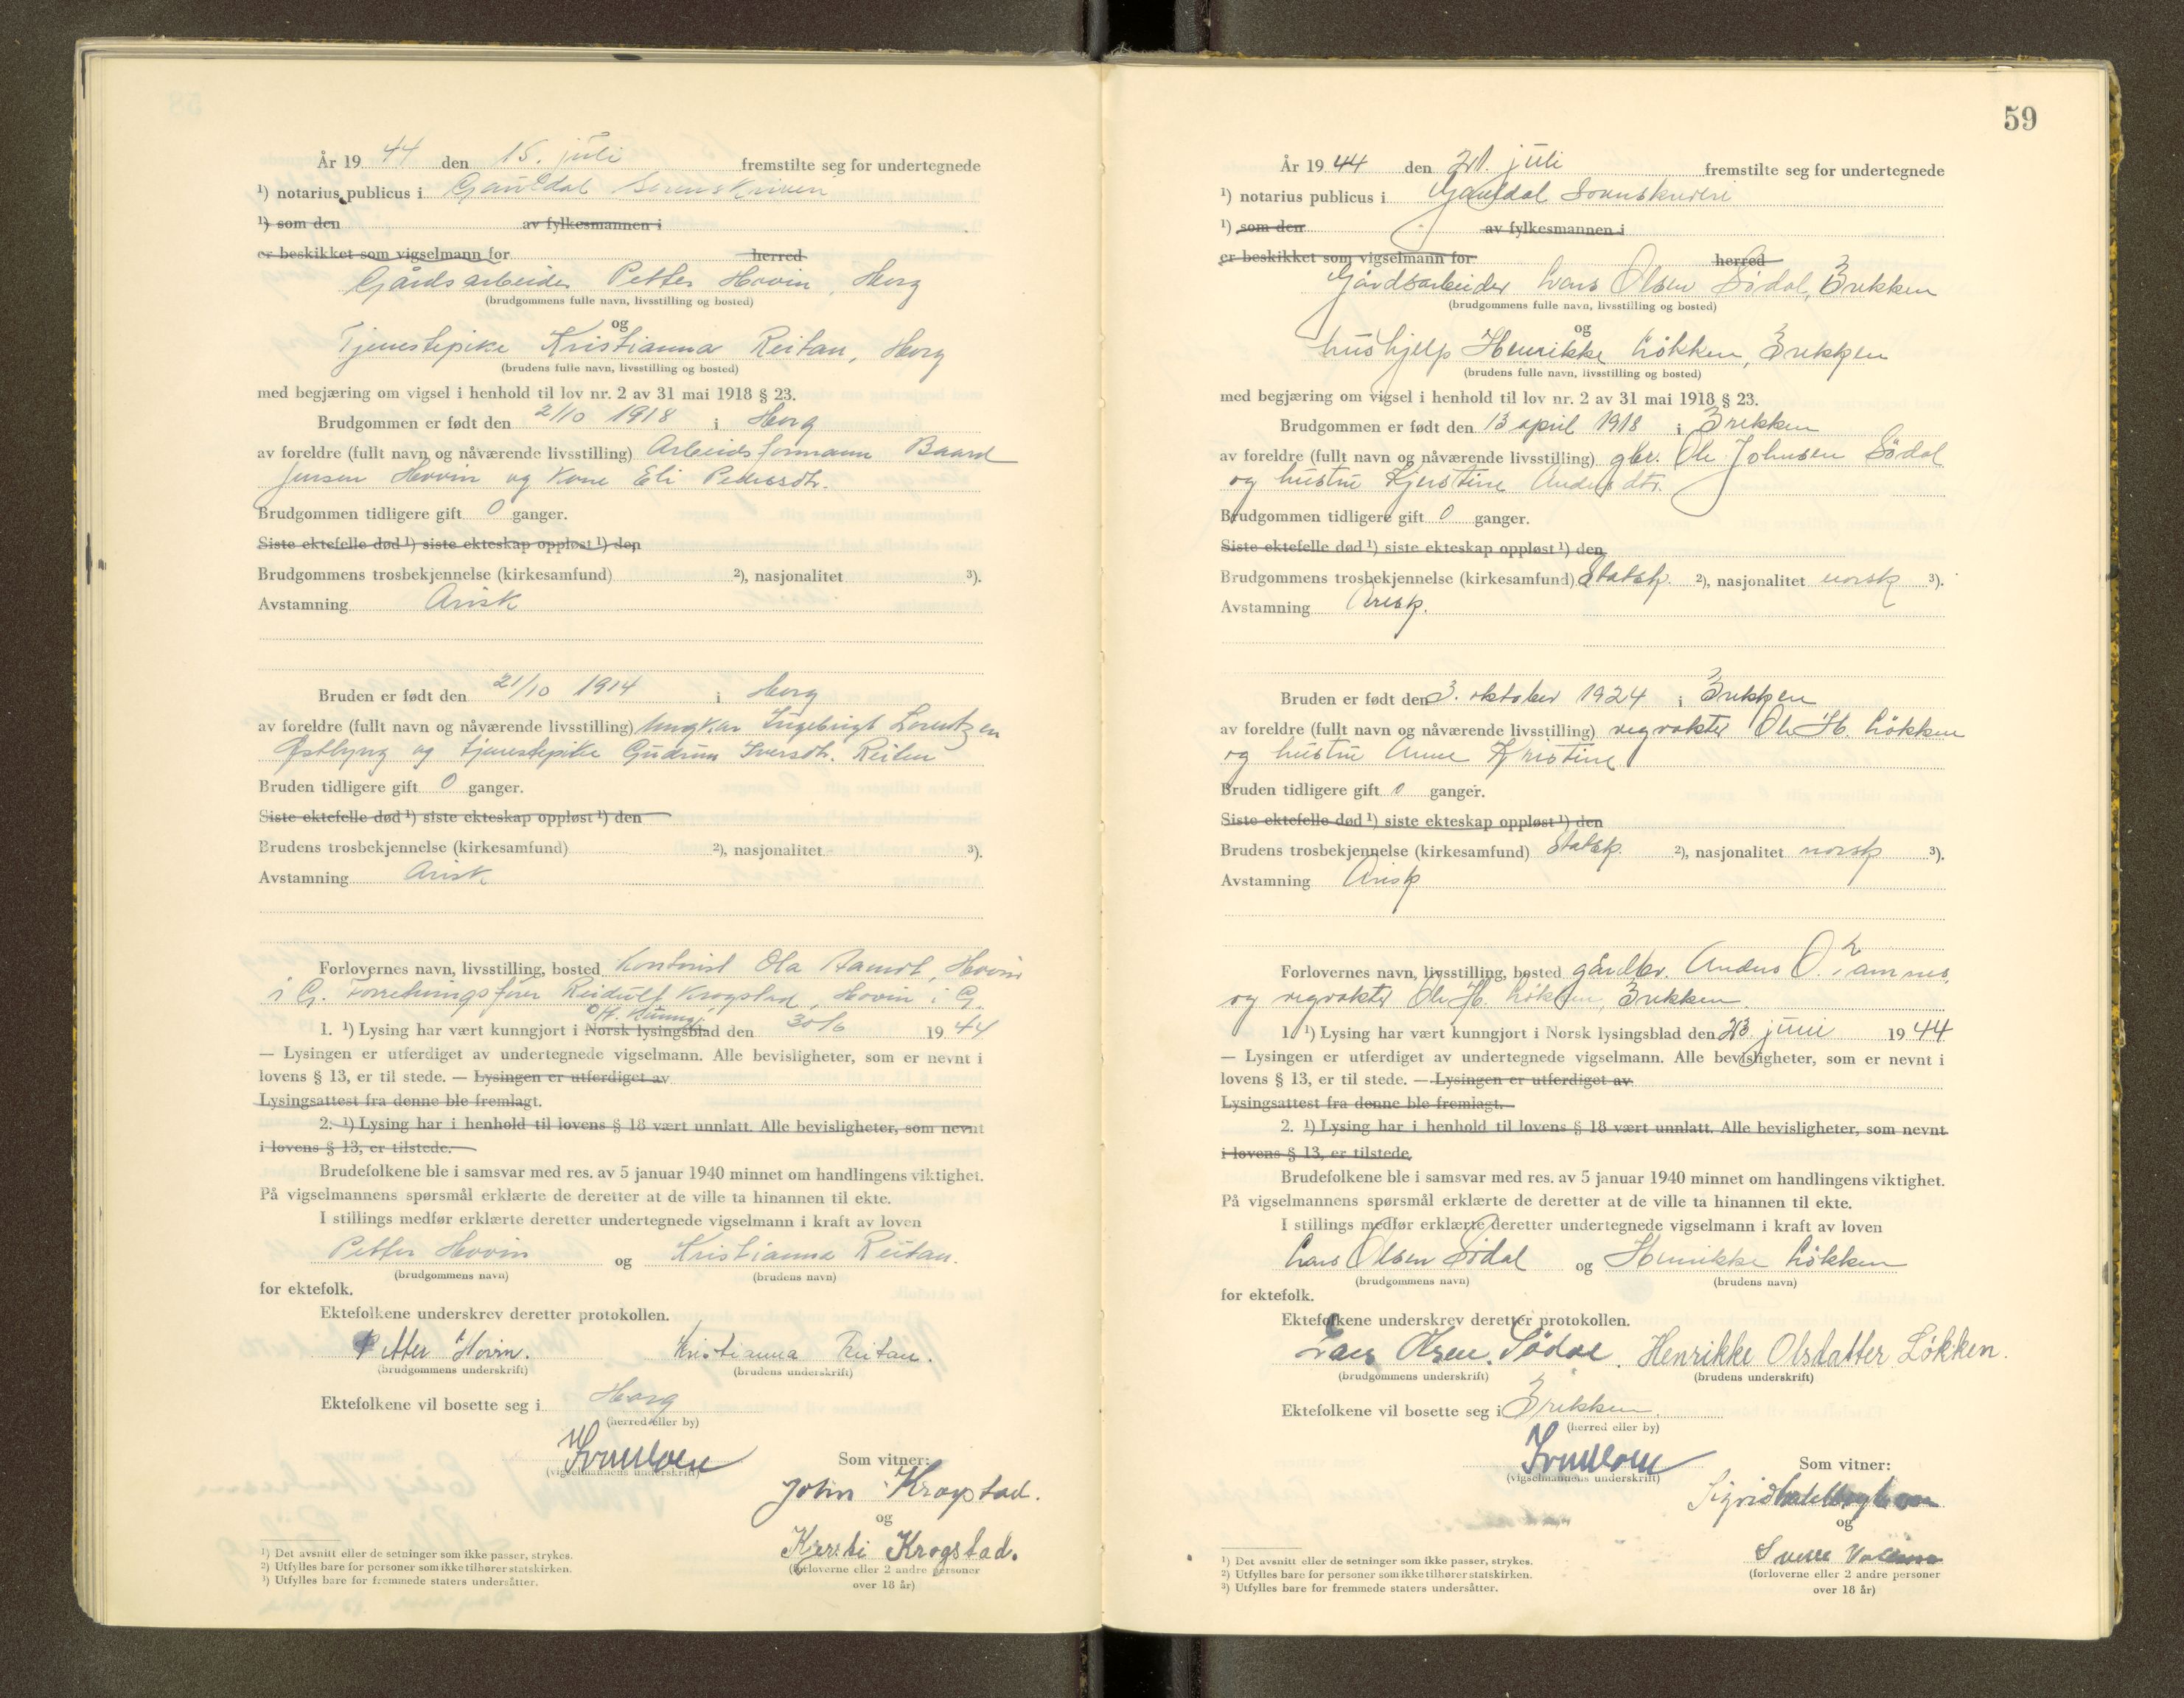 År 19 44 den 15. juli fremstilte seg for undertegnede
¹) notarius publicus i Gauldal Sorenskriveri
¹) som den av fylkesmannen i
er beskikket som vigselmann for herred
Gårdsarbeider Petter Hovin, Horg
(brudgommens fulle navn, livsstilling og bosted)
og
Tjenestepike Kristianna Reitan, Horg
(brudens fulle navn, livsstilling og bosted)
med begjæring om vigsel i henhold til lov nr. 2 av 31 mai 1918 § 23.
Brudgommen er født den 2/10 1918 i Horg
av foreldre (fullt navn og nåværende livsstilling) Arbeidsformann Baard
Jensen Hovin og Kone Eli Pedersdtr.
Brudgommen tidligere gift 0 ganger.
Siste ektefelle død ¹) siste ekteskap oppløst ¹) den
Brudgommens trosbekjennelse (kirkesamfund) ²), nasjonalitet ³).
Avstamning Arisk
Bruden er født den 21/10 1914 i Horg
av foreldre (fullt navn og nåværende livsstilling) Ungkar Ingebrigt Lorentzen
Østbyng og tjenestepike Gudrun Iversdtr. Reiten
Bruden tidligere gift 0 ganger.
Siste ektefelle død ¹) siste ekteskap oppløst ¹) den
Brudens trosbekjennelse (kirkesamfund) ²), nasjonalitet ³).
Avstamning Arisk
Forlovernes navn, livsstilling, bosted Kontorist Ola Aamot, Hovin
i G. Forretningsfører Reidulf Krogstad, Hovin i G.
Off. Kunngj.
1. ¹) Lysing har vært kunngjort i Norsk lysingsblad den 30/6 19 44
— Lysingen er utferdiget av undertegnede vigselmann. Alle bevisligheter, som er nevnt i
lovens § 13, er til stede. — Lysingen er utferdiget av
Lysingsattest fra denne ble fremlagt.
2. ¹) Lysing har i henhold til lovens § 18 vært unnlatt. Alle bevisligheter, som nevnt
i lovens § 13, er tilstede.
Brudefolkene ble i samsvar med res. av 5 januar 1940 minnet om handlingens viktighet.
På vigselmannens spørsmål erklærte de deretter at de ville ta hinannen til ekte.
I stillings medfør erklærte deretter undertegnede vigselmann i kraft av loven
Petter Hovin og Kristianna Reitan.
(brudgommens navn) (brudens navn)
for ektefolk.
Ektefolkene underskrev deretter protokollen.
Petter Hovin. Kristianna Reitan.
(brudgommens underskrift) (brudens underskrift)
Ektefolkene vil bosette seg i Horg
(herred eller by)
(vigselmannens underskrift)
Som vitner:
John Krogstad.
og
Kjersti Krogstad.
(forloverne eller 2 andre personer
over 18 år)
¹) Det avsnitt eller de setninger som ikke passer, strykes.
²) Utfylles bare for personer som ikke tilhører statskirken.
³) Utfylles bare for fremmede staters undersåtter.
59
År 19 44 den 21. juli fremstilte seg for undertegnede
¹) notarius publicus i Gauldal Sorenskriveri
¹) som den av fylkesmannen i
er beskikket som vigselmann for herred
Gårdsarbeider Lars Olsen Sødal, Brekken
(brudgommens fulle navn, livsstilling og bosted)
og
hushjelp Henrikke Løkken, Brekken
(brudens fulle navn, livsstilling og bosted)
med begjæring om vigsel i henhold til lov nr. 2 av 31 mai 1918 § 23.
Brudgommen er født den 13 april 1918 i Brekken
av foreldre (fullt navn og nåværende livsstilling) gbr. Ole Johnsen Sødal
og hustru Kjerstine Andersdtr.
Brudgommen tidligere gift 0 ganger.
Siste ektefelle død ¹) siste ekteskap oppløst ¹) den
Brudgommens trosbekjennelse (kirkesamfund) statsk. ²), nasjonalitet norsk ³).
Avstamning Arisk.
Bruden er født den 3. oktober 1924 i Brekken
av foreldre (fullt navn og nåværende livsstilling) vegvokter Ole H. Løkken
og hustru Anne Kristine
Bruden tidligere gift 0 ganger.
Siste ektefelle død ¹) siste ekteskap oppløst ¹) den
Brudens trosbekjennelse (kirkesamfund) statsk. ²), nasjonalitet norsk ³).
Avstamning Arisk
Forlovernes navn, livsstilling, bosted gårdbr. Anders O.
og vegvokter Ole H. Løkken, Brekken
1. ¹) Lysing har vært kunngjort i Norsk lysingsblad den 23. juni 19 44
— Lysingen er utferdiget av undertegnede vigselmann. Alle bevisligheter, som er nevnt i
lovens § 13, er til stede. — Lysingen er utferdiget av
Lysingsattest fra denne ble fremlagt.
2. ¹) Lysing har i henhold til lovens § 18 vært unnlatt. Alle bevisligheter, som nevnt
i lovens § 13, er tilstede.
Brudefolkene ble i samsvar med res. av 5 januar 1940 minnet om handlingens viktighet.
På vigselmannens spørsmål erklærte de deretter at de ville ta hinannen til ekte.
I stillings medfør erklærte deretter undertegnede vigselmann i kraft av loven
Lars Olsen Sødal og Henrikke Løkken
(brudgommens navn) (brudens navn)
for ektefolk.
Ektefolkene underskrev deretter protokollen.
Lars Olsen. Sødal. Henrikke Olsdatter Løkken.
(brudgommens underskrift) (brudens underskrift)
Ektefolkene vil bosette seg i Brekken.
(herred eller by)
(vigselmannens underskrift)
Som vitner:
Sigrid
og
(forloverne eller 2 andre personer
over 18 år)
¹) Det avsnitt eller de setninger som ikke passer, strykes.
²) Utfylles bare for personer som ikke tilhører statskirken.
³) Utfylles bare for fremmede staters undersåtter.